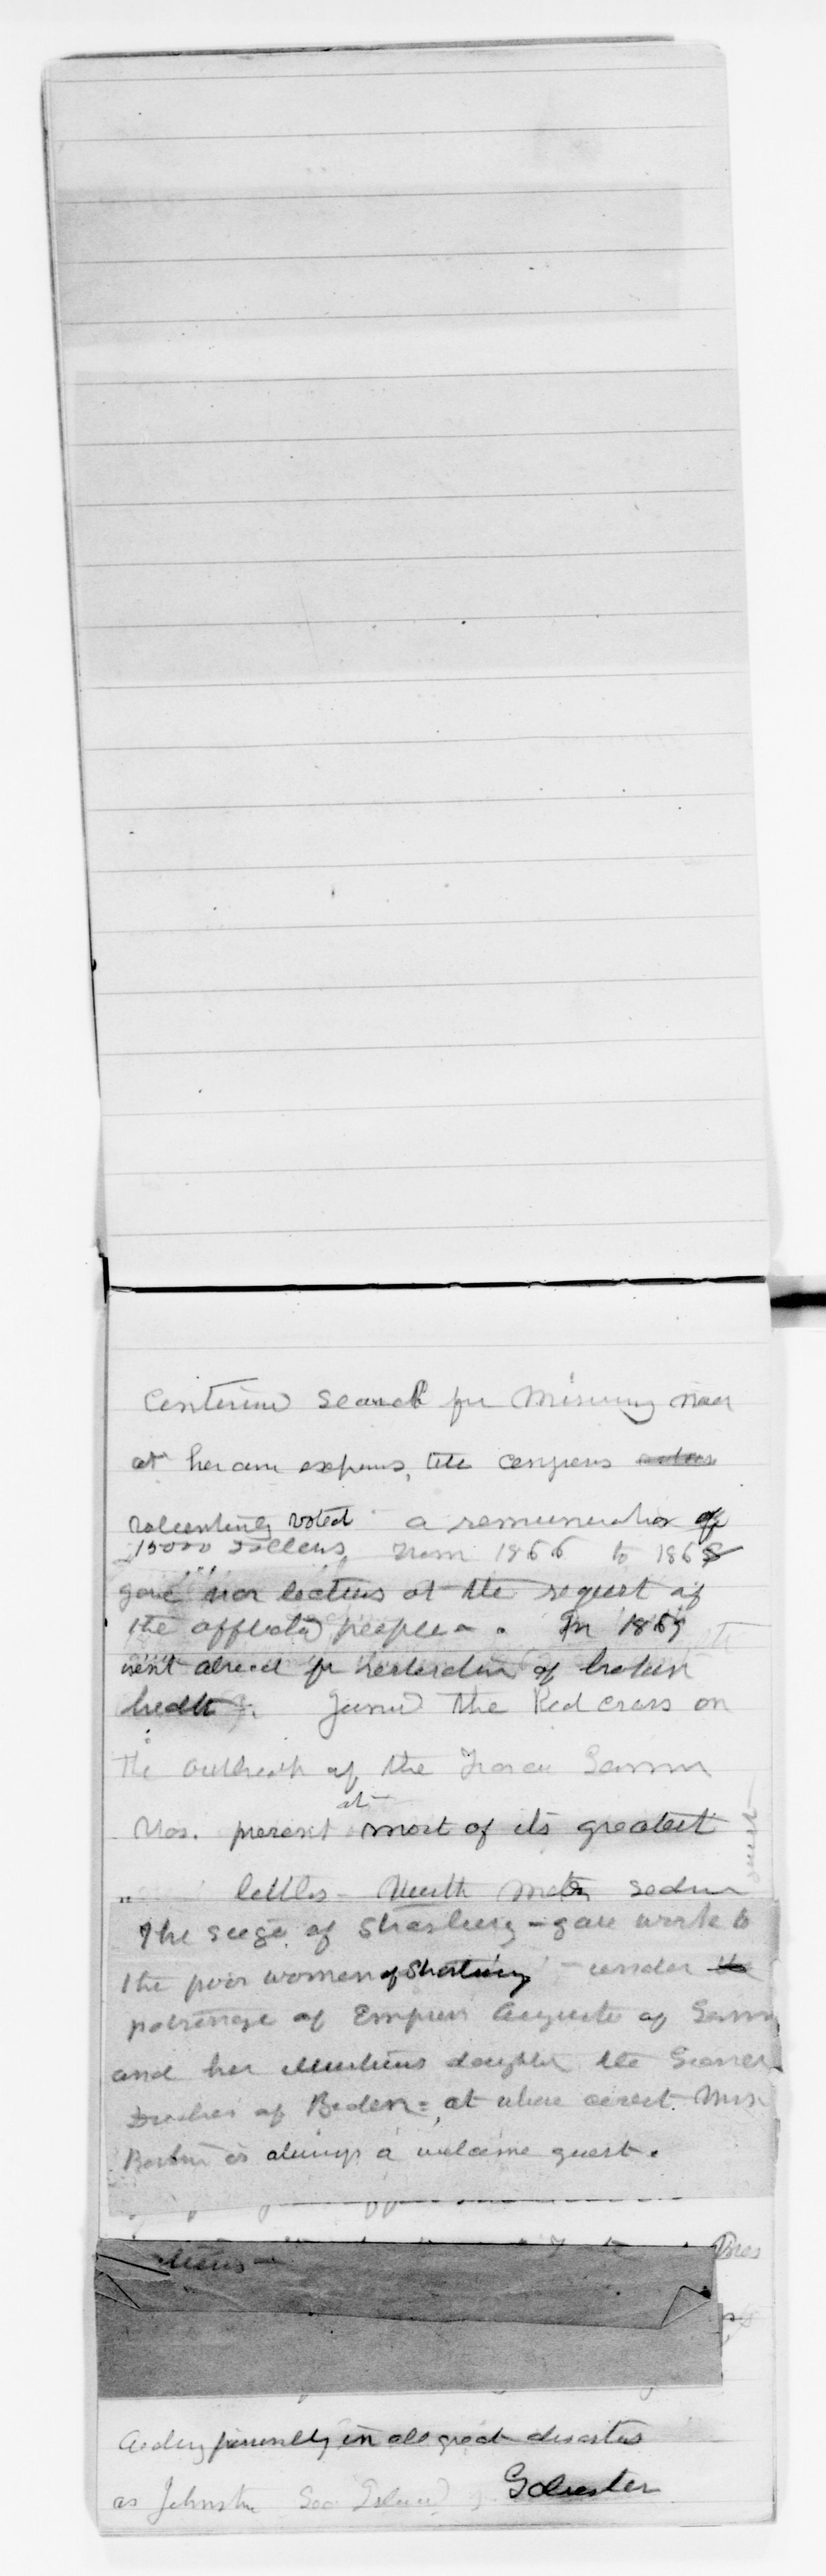 Continued search for missing men
at her own expense, the congress
voluntarily voted a remuneration of
15000 dollars. From 1866 to 1868
gave war lectures at the request of
the people. In 1869
went abroad for restoration of broken
health. Joined the Red Cross on
the outbreak of the Franco German
Was. present at most of its greatest
battles - Woerth Metz Sedan
The siege of Strasburg - gave work to
the poor women of Strasburg - under the
patronage of Empress Augusta of Germ
and her illustrious daughter the Grand
Duches of Baden = at whose court Miss
Barton is always a welcome guest.
Aiding personally in all great disasters
as Johnstn Sea Island Galvester